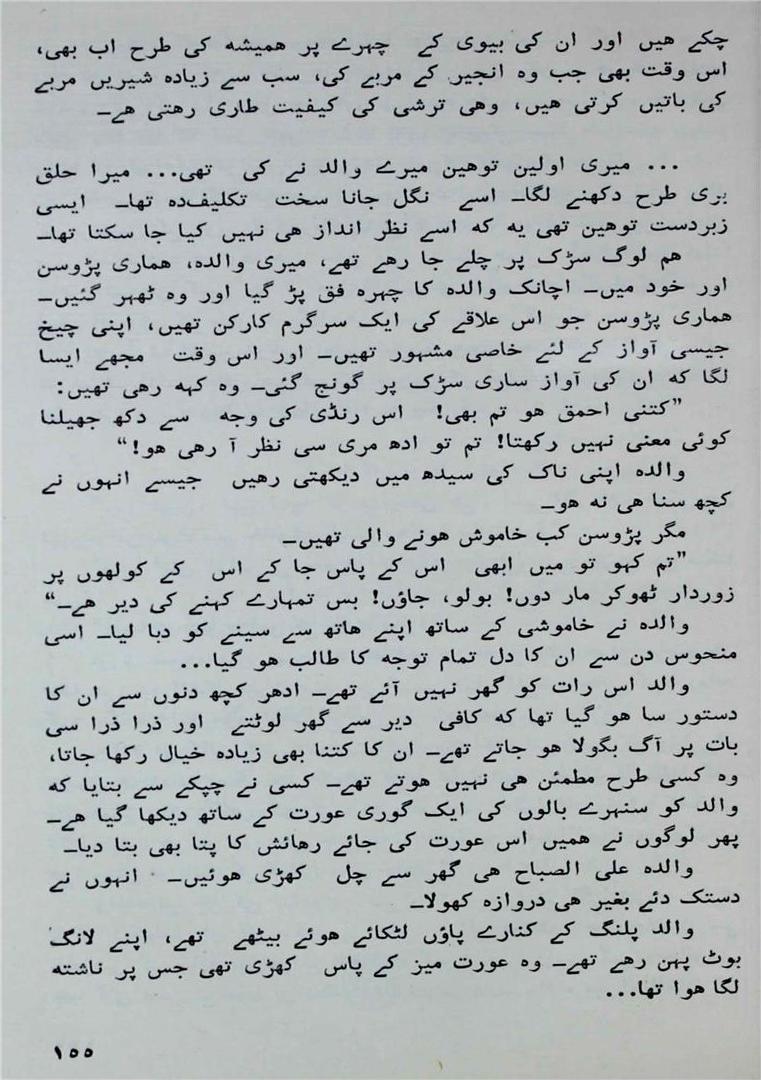 چکے ھیں اور ان کی بیوی کے چہرے پر ھمیشه کی طرح اب بھی،
اس وقت بھی جب وہ انجیر کے مربے کی، سب سے زیادہ شیریں مربے
کی باتیں کرتی ھیں، وھی ترشی کی کیفیت طاری رھتی ھے۔
... میری اولین توھین میرے والد نے کی تھی... میرا حلق
بری طرح دکھنے لگا۔ اسے نگل جانا سخت تکلیف‌دہ تھا۔ ایسی
زبردست توھین تھی یه که اسے نظر انداز ھی نہیں کیا جا سکتا تھا۔
ھم لوگ سڑک پر چلے جا رھے تھے، میری والدہ، ھماری پڑوسن
اور خود میں۔ اچانک والدہ کا چہرہ فق پڑ گیا اور وہ ٹھہر گئیں۔
ھماری پڑوسن جو اس علاقے کی ایک سرگرم کارکن تھیں، اپنی چیخ
جیسی آواز کے لئے خاصی مشہور تھیں۔ اور اس وقت مجھے ایسا
لگا که ان کی آواز ساری سڑک پر گونج گئی۔ وہ کہه رھی تھیں:
”کتنی احمق ھو تم بھی! اس رنڈی کی وجه سے دکھ جھیلنا
کوئی معنی نہیں رکھتا! تم تو ادھ مری سی نظر آ رھی ھو!“
والدہ اپنی ناک کی سیدھ میں دیکھتی رھیں جیسے انہوں نے
کچھ سنا ھی نه ھو۔
مگر پڑوسن کب خاموش ھونے والی تھیں۔
”تم کہو تو میں ابھی اس کے پاس جا کے اس کے کولھوں پر
زوردار ٹھوکر مار دوں! بولو، جاؤں! بس تمہارے کہنے کی دیر ھے۔“
والدہ نے خاموشی کے ساتھ اپنے ھاتھ سے سینے کو دبا لیا۔ اسی
منحوس دن سے ان کا دل تمام توجه کا طالب ھو گیا...
والد اس رات کو گھر نہیں آئے تھے۔ ادھر کچھ دنوں سے ان کا
دستور سا ھو گیا تھا که کافی دیر سے گھر لوٹتے اور ذرا ذرا سی
بات پر آگ بگولا ھو جاتے تھے۔ ان کا کتنا بھی زیادہ خیال رکھا جاتا،
وہ کسی طرح مطمئن ھی نہیں ھوتے تھے۔ کسی نے چپکے سے بتایا که
والد کو سنہرے بالوں کی ایک گوری عورت کے ساتھ دیکھا گیا ھے۔
پھر لوگوں نے ھمیں اس عورت کی جائے رھائش کا پتا بھی بتا دیا۔
والدہ علی الصباح ھی گھر سے چل کھڑی ھوئیں۔ انہوں نے
دستک دئے بغیر ھی دروازہ کھولا۔
والد پلنگ کے کنارے پاؤں لٹکائے ھوئے بیٹھے تھے، اپنے لانگ
بوٹ پہن رھے تھے۔ وہ عورت میز کے پاس کھڑی تھی جس پر ناشته
لگا ھوا تھا...
۱۵۵